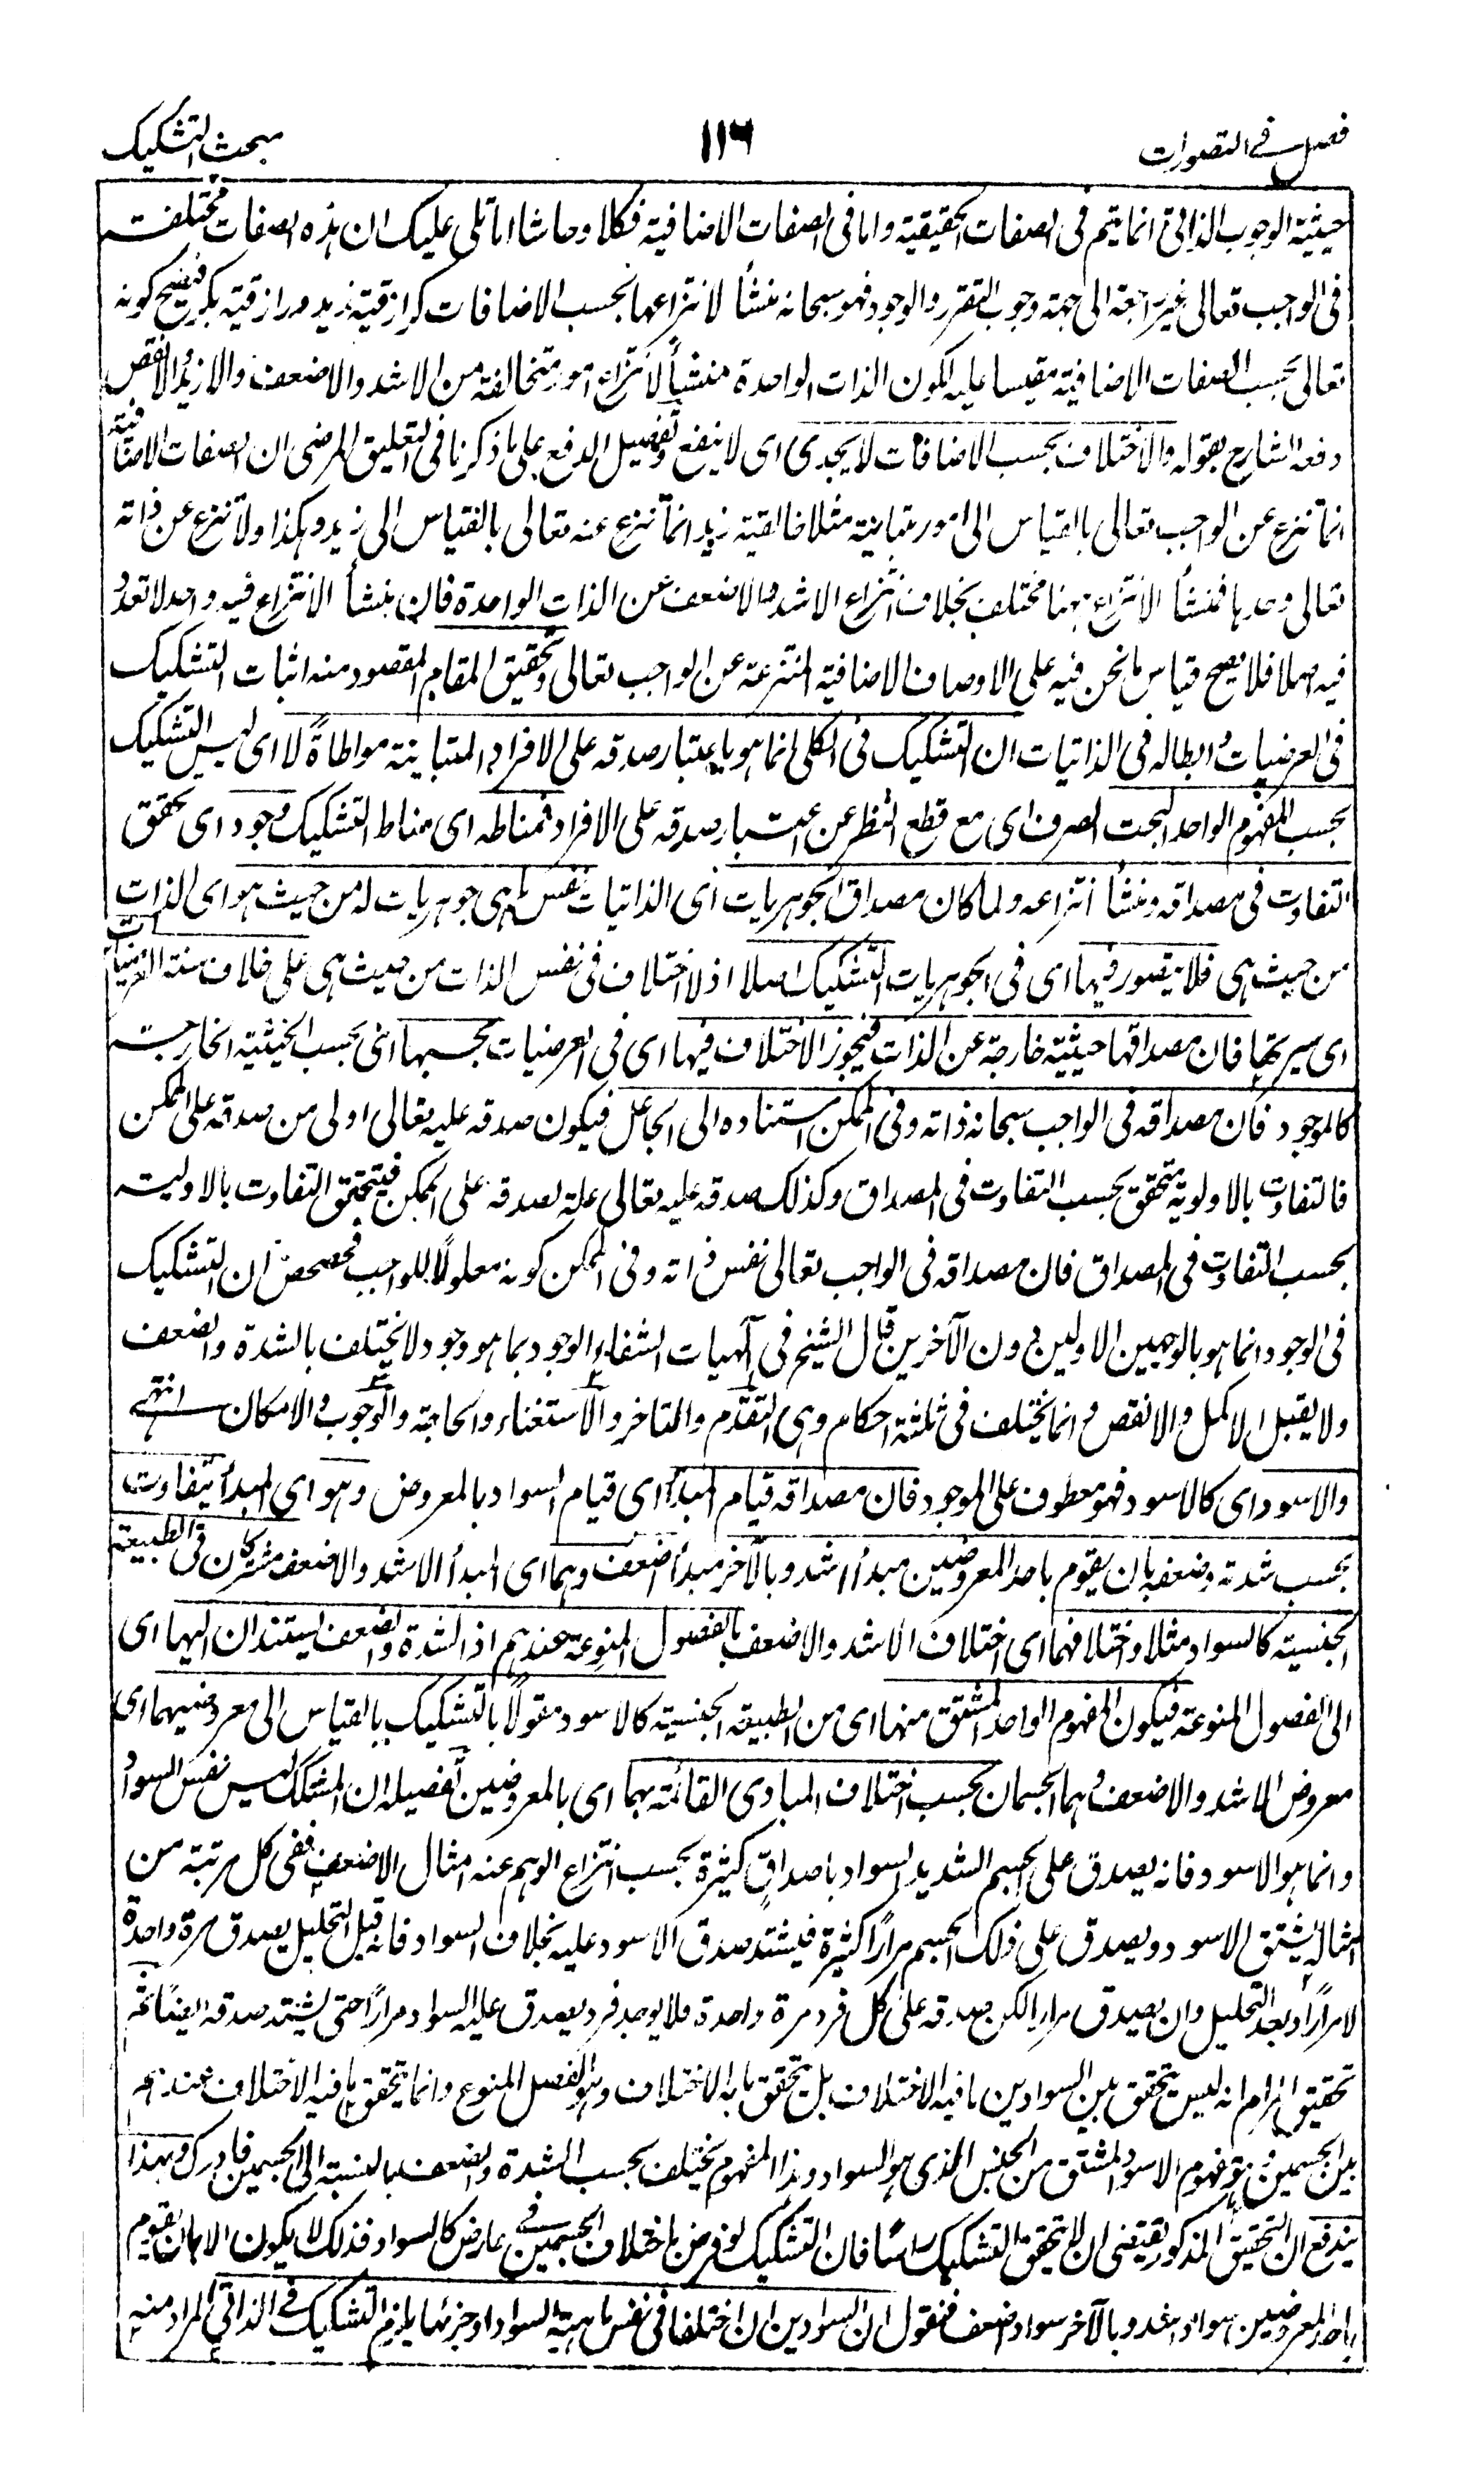 فصل فے التصورات
١١٦
مبحث التشکیک
حیثیة الوجوب الذاتی انما یتم فی الصفات الحقیقیة واما فی الصفات الاضافیة فکلا وحاشا اما تلی علیک ان ہذہ الصفات مختلفة
فی الواجب تعالی غیر راجعة الی جهة وجوب التقرر والوجود فهو سبحانه منشأ لانتزاعها بحسب الاضافات کرازقیة زید ورازقیة بکر فیصح کونه
تعالی بحسب الصفات الاضافیة مقیسا علیه لکون الذات الواحدة منشأ لانتزاع امور متخالفة من الاشد والاضعف والازید والانقص
دفعه الشارح بقوله والاختلاف بحسب الاضافات لا یجدی ای لا ینفع وتفصیل الدفع علی ما ذکرنا فی التعلیق المرضی ان الصفات الاضافیة
انما تنزع عن الواجب تعالی بالقیاس الی امور متباینة مثلا خالقیة زید انما تنزع عنه تعالی بالقیاس الی زید وہکذا ولا تنزع عن ذاته
تعالی وحدہا فمنشأ الانتزاع ہہنا مختلف بخلاف انتزاع الاشد والاضعف عن الذات الواحدة فان منشأ الانتزاع فیه واحد لا تعدد
فیه اصلا فلا یصح قیاس ما نحن فیه علی الاوصاف الاضافیة المنتزعة عن الواجب تعالی وتحقیق المقام المقصود منه اثبات التشکیک
فی العرضیات وابطاله فی الذاتیات ان التشکیک فی الکلی انما هو باعتبار صدقه علی الافراد المتباینة مواطاةً لا ای لیس التشکیک
بحسب المفهوم الواحد البحت الصرف ای مع قطع النظر عن اعتبار صدقه علی الافراد فمناطه ای مناط التشکیک وجود ای تحقق
التفاوت فی مصداقه ومنشأ انتزاعه ولما کان مصداق الجوہریات ای الذاتیات نفس ما ہی جوہریات له من حیث هو ای الذات
من حیث ہی فلا یتصور فیها ای فی الجوہریات التشکیک اصلا اذ لا اختلاف فی نفس الذات من حیث ہی علی خلاف سنة العرضیات
ای سیرتها فان مصداقها حیثیة خارجة عن الذات فیجوز الاختلاف فیها ای فی العرضیات بحسبها ای بحسب الحیثیة الخارجة
کالموجود فان مصداقه فی الواجب سبحانه ذاته وفی الممکن استناده الی الجاعل فیکون صدقه علیه تعالی اولی من صدقه علی الممکن
فالتفاوت بالاولویة متحقق بحسب التفاوت فی المصداق وکذلک صدقه علیه تعالی علة لصدقه علی الممکن فیتحقق التفاوت بالاولیة
بحسب التفاوت فی المصداق فان مصداقه فی الواجب تعالی نفس ذاته وفی الممکن کونه معلولاً للواجب فحصحص ان التشکیک
فی الوجود انما هو بالوجهین الاولین دون الآخرین قال الشیخ فی آلهیات الشفاء الوجود بما هو وجود لا یختلف بالشدة والضعف
ولا یقبل الاکمل والانقص وانما یختلف فی ثلثة احکام وہی التقدم والتاخر والاستغناء والحاجة والوجوب والامکان انتهے
والاسود ای کالاسود فهو معطوف علی الموجود فان مصداقه قیام المبدأ ای قیام السواد بالمعروض وهو ای المبدأ یتفاوت
بحسب شدته وضعفه بان یقوم باحد المعروضین مبدأ اشد وبالآخر مبدأ اضعف وہما ای المبدأ الاشد والاضعف مشترکان فی الطبیعة
الجنسیة کالسواد مثلا واختلافهما ای اختلاف الاشد والاضعف بالفصول المنوعة عندہم اذ الشدة والضعف یستندان الیہا ای
الی الفصول المنوعة فیکون المفهوم الواحد المشتق منها ای من الطبیعة الجنسیة کالاسود مقولاً بالتشکیک بالقیاس الی معروضیهما ای
معروض الاشد والاضعف وہما الجسمان بحسب اختلاف المبادی القائمة بهما ای بالمعروضین تفصیله ان المشکک لیس نفس السواد
وانما هو الاسود فانه یصدق علی الجسم الشدید السواد باصداق کثیرة بحسب انتزاع الوہم عنه امثال الاضعف ففی کل مرتبة من
امثاله یشتق الاسود ویصدق علی ذلک الجسم مراراً کثیرة فیشتد صدق الاسود علیه بخلاف السواد فانه قبل التحلیل یصدق مرة واحدة
لا مراراً وبعد التحلیل وان یصدق مرارا لکن صدقه علی کل فرد مرة واحدة فلا یوجد فرد یصدق علیه السواد مراراً حتی یشتد صدقه ایضا
تحقیق المرام انه لیس یتحقق بین السوادین ما فیه الاختلاف بل یتحقق ما به الاختلاف وهو الفصل المنوع وانما یتحقق ما فیه الاختلاف عندہم
بین الجسمین وهو مفهوم الاسود المشتق من الجنس الذی هو السواد وہذا المفهوم یختلف بحسب الشدة والضعف بالنسبة الی الجسمین فادرک وبهذا
یندفع ان التحقیق المذکور یقتضی ان لا یتحقق التشکیک راسا فان التشکیک لو فرض باختلاف الجسمین فے عارض کالسواد فذلک لا یکون الا بان یقوم
باحد المعروضین سواد اشد وبالآخر سواد اضعف فنقول ان السوادین ان اختلفا فی نفس ماہیة السواد او جزئها یلزم التشکیک فے الذاتی المراد منه